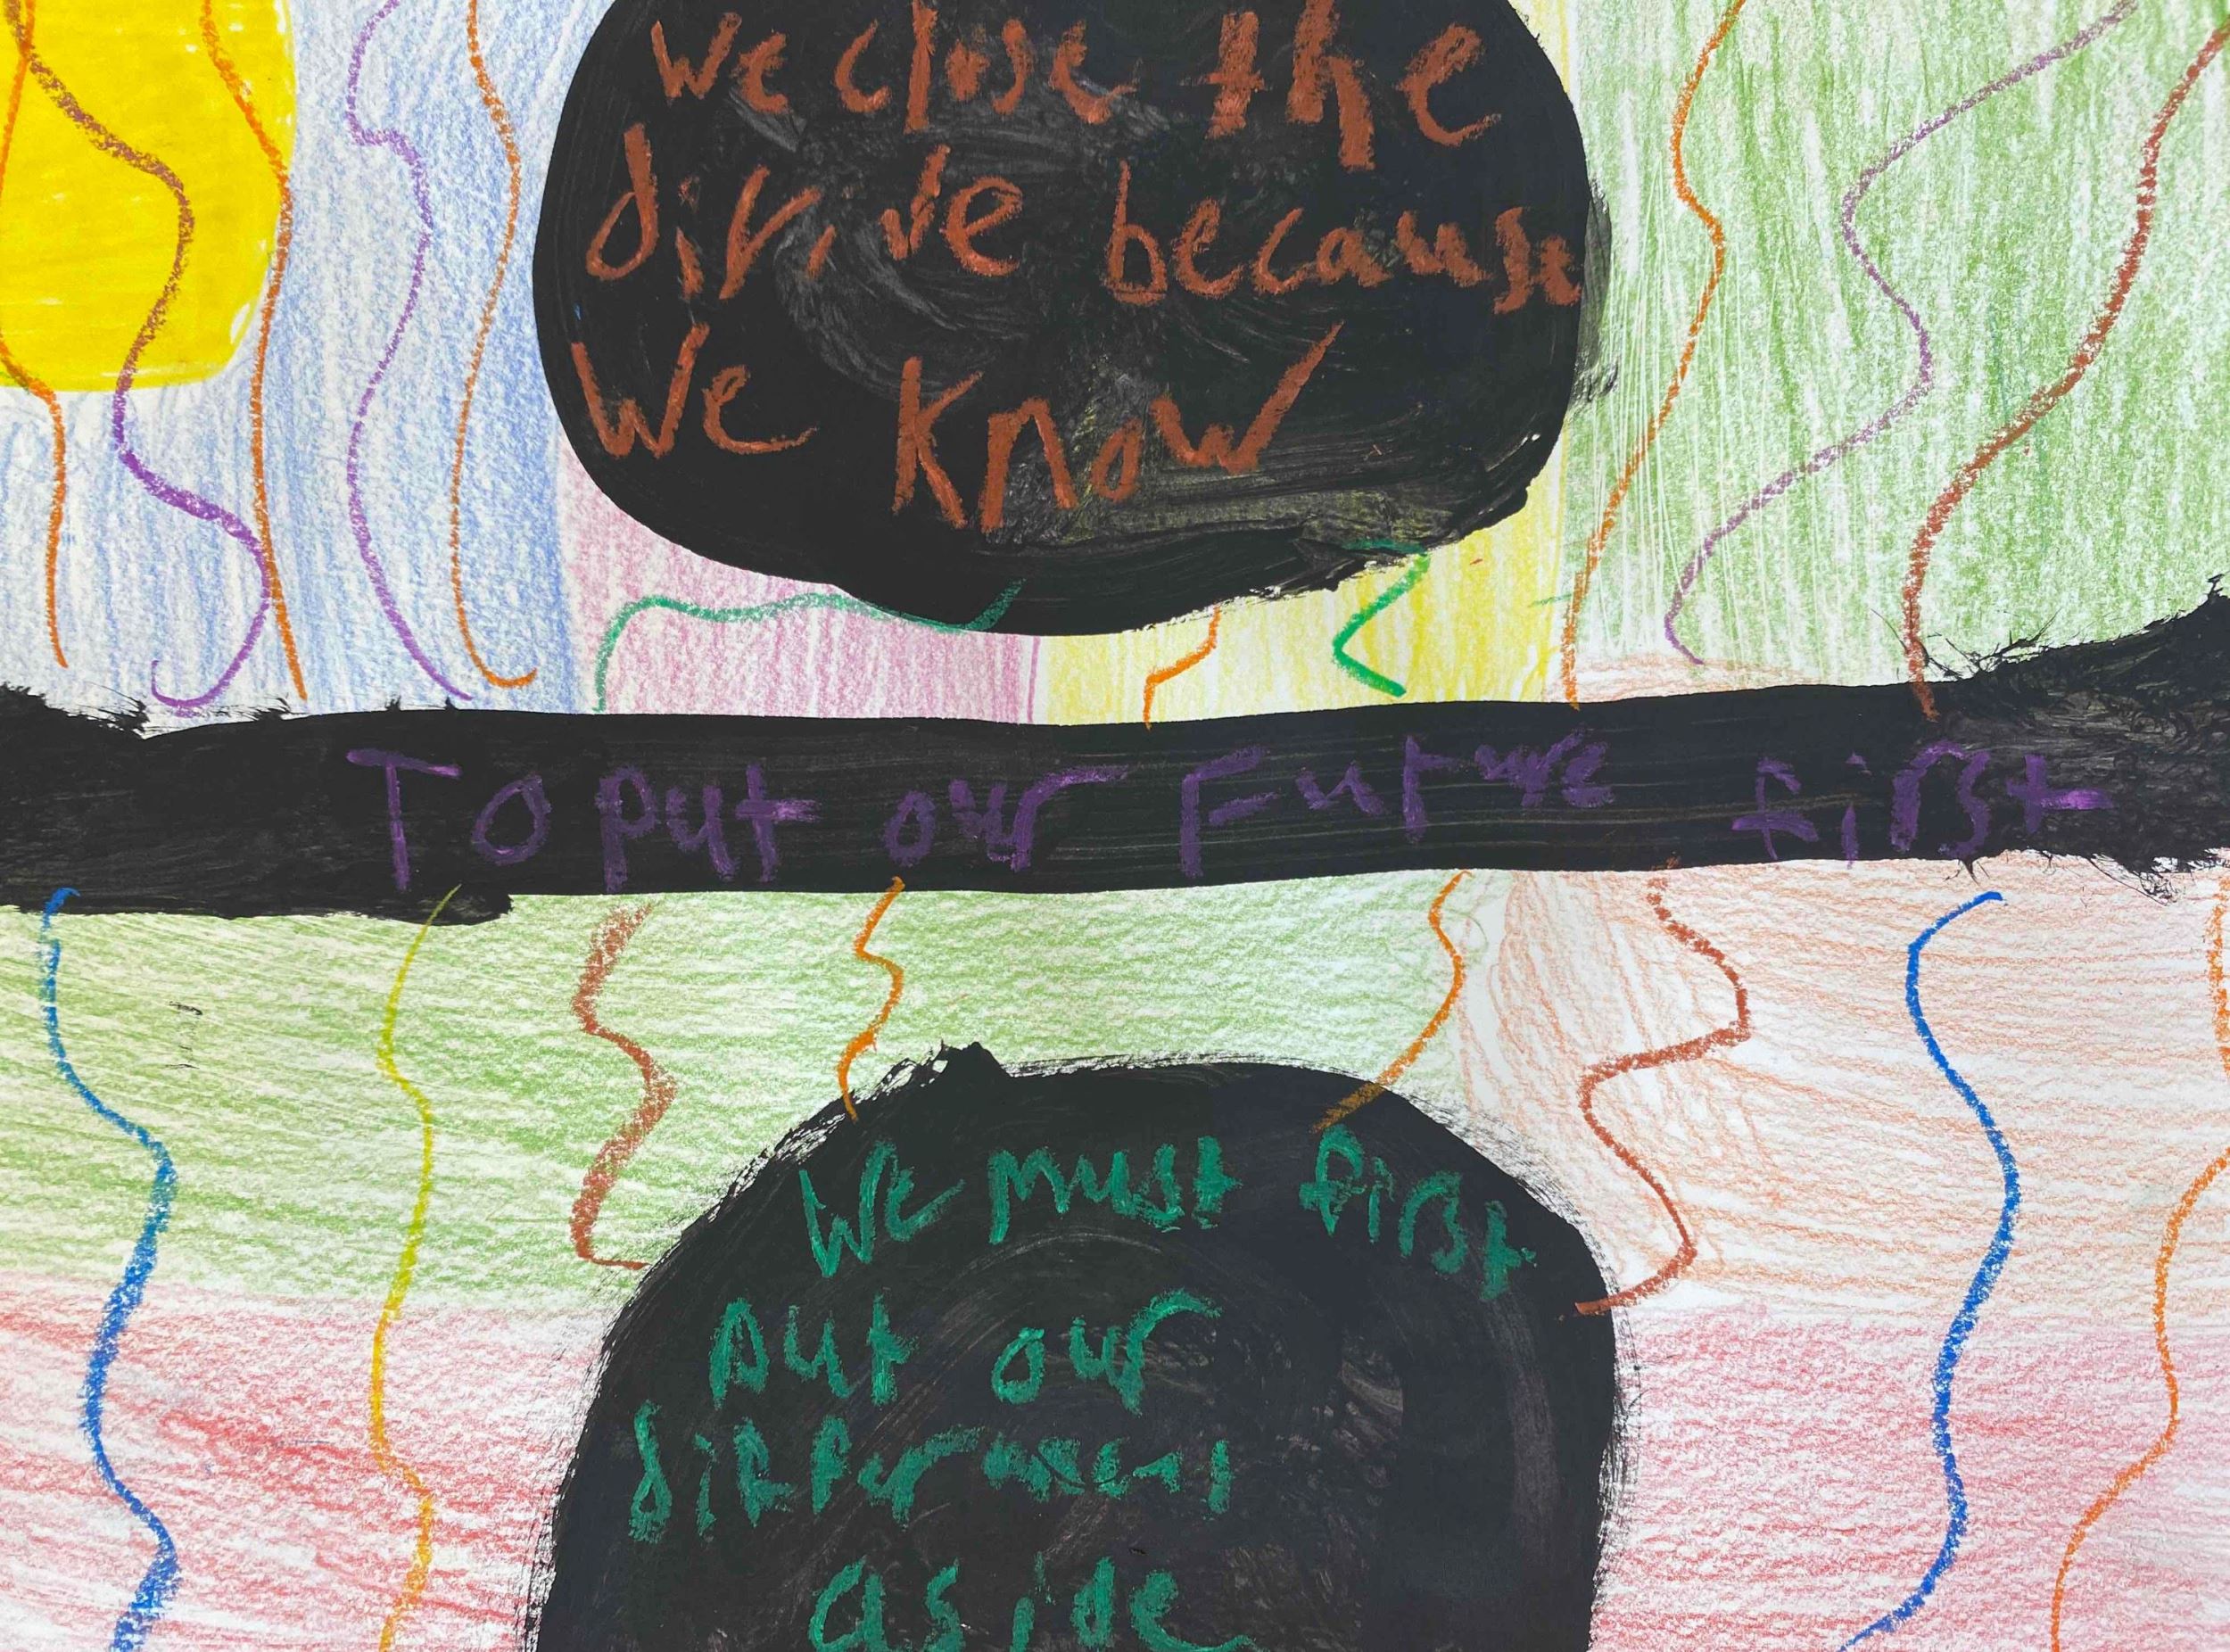 we close the
divide because
We know
To put our Future first
We must first
put our
differences
aside